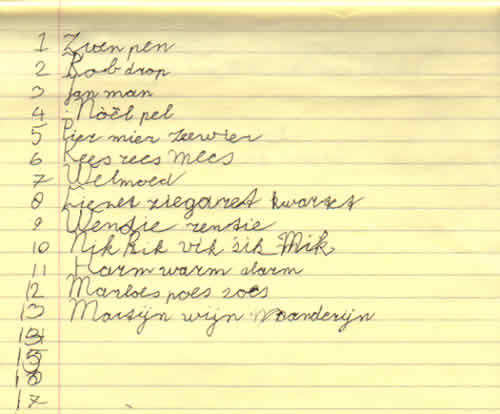 1 Zwen pen
2 Bob drop
3 Jan man
4 Noël pel
5 Pier mier zewier
6 Kees rees mees
7 Welmoed
8 Lienet siegaret kwartet
9 Wendie rensie
10 Nik kik vik sik Mik
11 Harm warm darm
12 Marloes poes zoes
13 Martijn wijn Maanderijn
14
15
16
17